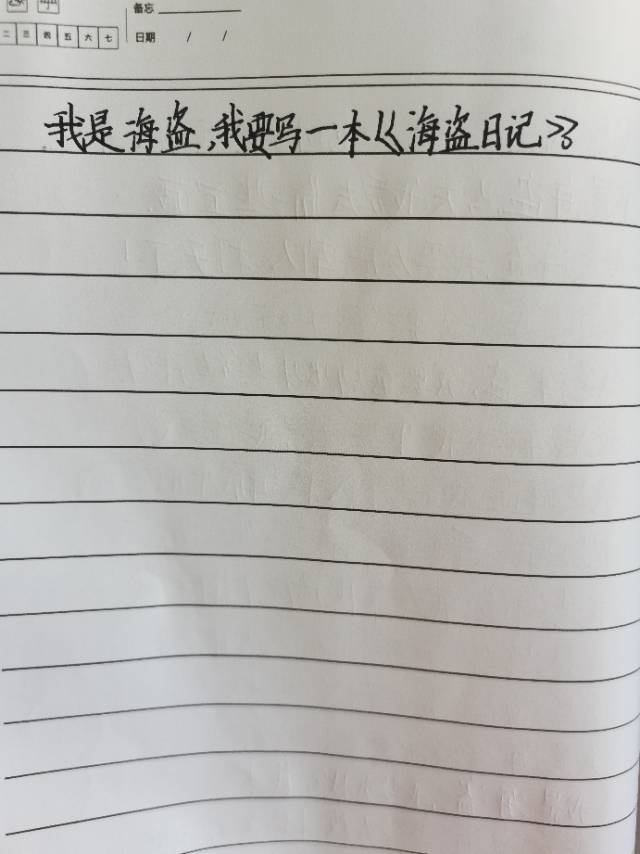 备忘
二 三 四 五 六 七 日期 / /
我是海盗,我要写一本《海盗日记》。